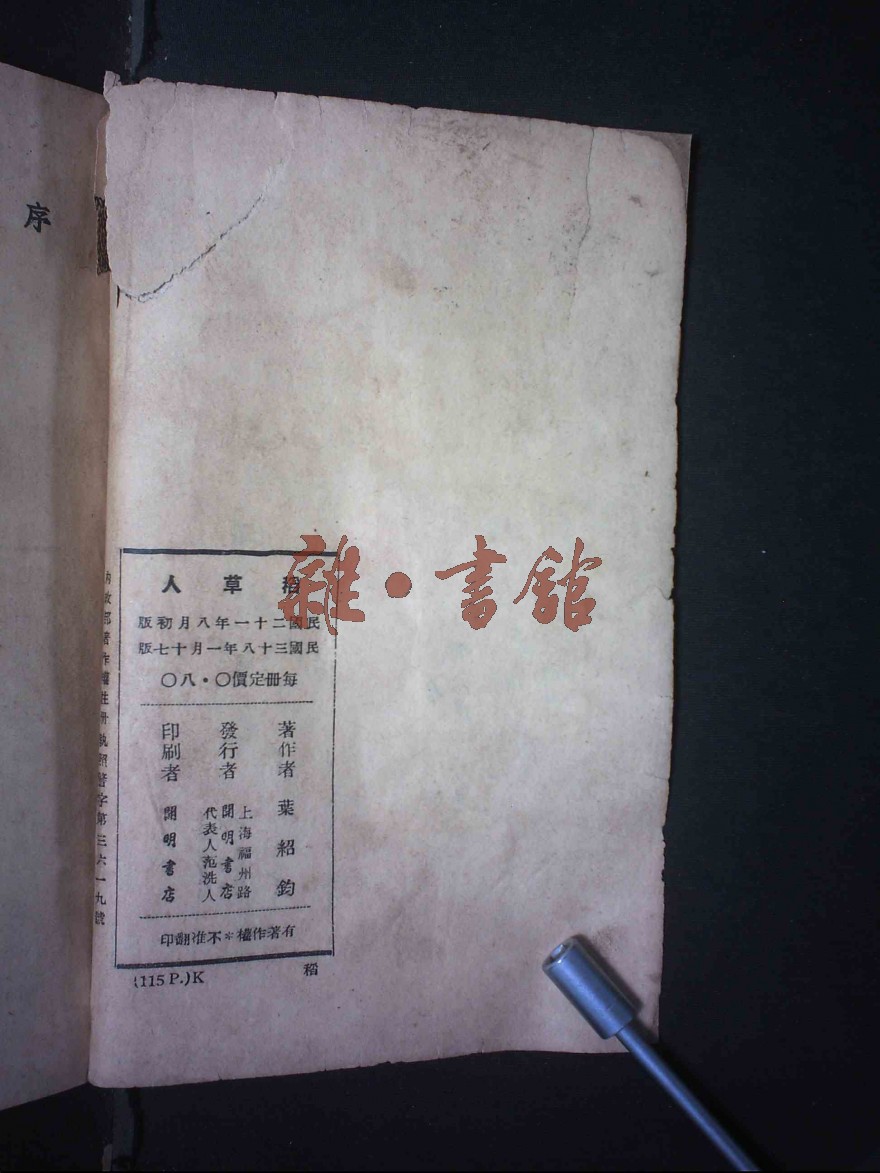 序
稻草人
民國二十一年八月初版
民國三十八年一月十七版
每冊定價〇·八〇
著作者 葉紹鈞
發行者
上海福州路
開明書店
代表人范洗人
印刷者 開明書店
有著作權※不准翻印
稻
(115 P.)K
內政部著作權註冊執照警字第三六一九號
雜·書館